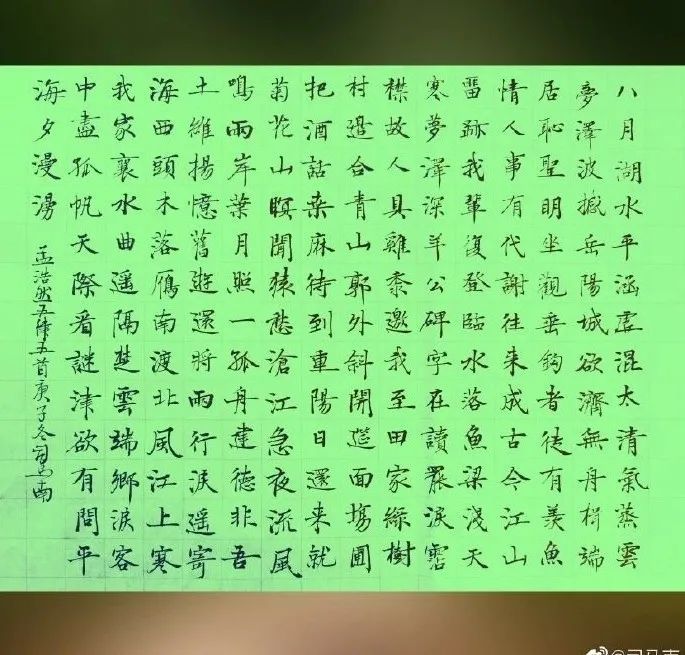 八月湖水平涵虛混太清氣蒸雲
夢澤波撼岳陽城欲濟無舟楫端
居恥聖明坐觀垂釣者徒有羨魚
情人事有代謝往来成古今江山
畱跡我輩復登臨水落魚梁淺天
寒夢澤深羊公碑字在讀罷淚霑
襟故人具雞黍邀我至田家綠樹
村邊合青山郭外斜開筵面場圃
把酒話桑麻待到重陽日還来就
菊花山暝聞猿愁滄江急夜流風
鳴兩岸葉月照一孤舟建德非吾
土維揚憶舊遊還將兩行淚遥寄
海西頭木落鴈南渡北風江上寒
我家襄水曲遥隔楚雲端鄉淚客
中盡孤帆天際看謎津欲有問平
海夕漫湧
孟浩然五律五首庚子冬司馬南